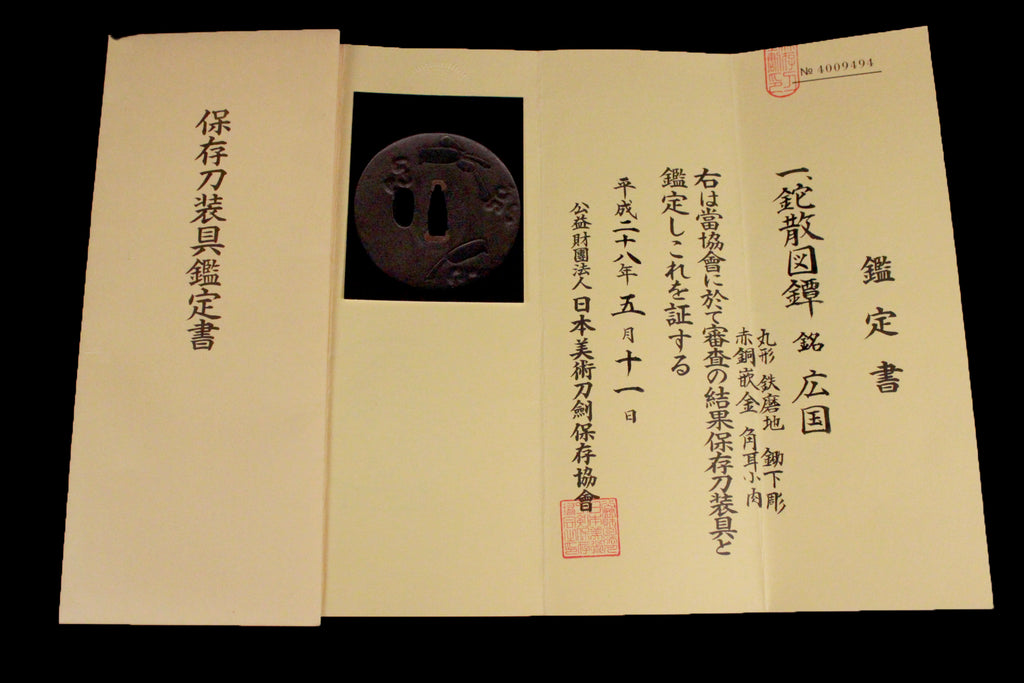 № 4009494
鑑定書
一、鉈散図鐔 銘 広国
丸形 鉄磨地 鋤下彫
赤銅嵌金 角耳小肉
右は當協會に於て審査の結果保存刀装具と
鑑定しこれを証する
平成二十八年五月十一日
公益財團法人日本美術刀劍保存協會
保存刀装具鑑定書